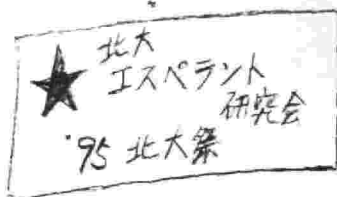 北大
エスペラント
研究会
'95 北大祭